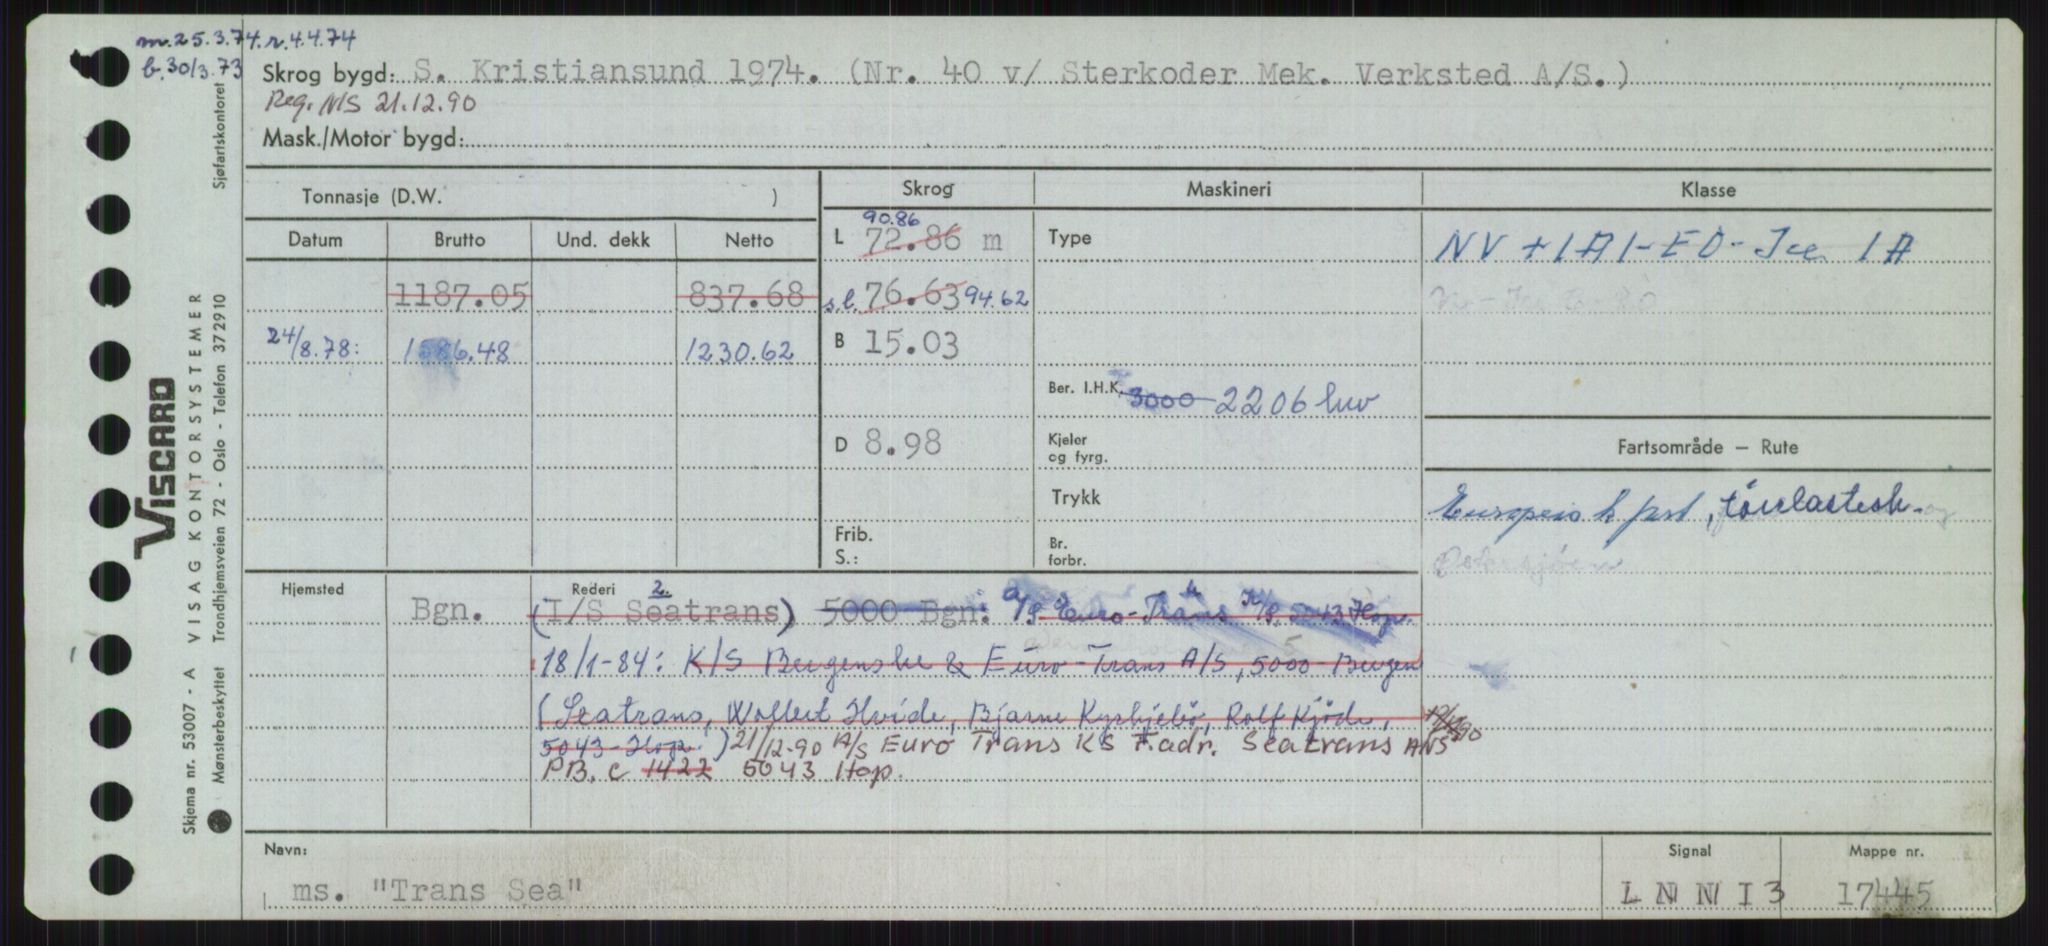 m.25.3.74.r.4.4.74
b.30/3.73
Skrog bygd: S. Kristiansund 1974. (Nr. 40 v/ Sterkoder Mek. Verksted A/S.)
Reg. NIS 21.12.90
Mask./Motor bygd:
Sjøfartskontoret
Tonnasje (D.W. )
Skrog
Maskineri
Klasse
Datum Brutto Und. dekk Netto
1187.05 837.68
24/8.78: 1586.48 1230.62
L 72.86 m 90.86
s.l. 76.63 94.62
B 15.03
D 8.98
Frib.
S.:
Type
Ber. I.H.K. 3000 2206 kw
Kjeler
og fyrg.
Trykk
Br.
forbr.
NV + 1A1-EO-Ice 1A
Fartsområde — Rute
Europeisk fart, tørrlastesk.
Østersjøen
Hjemsted
Rederi 2.
Bgn. (I/S Seatrans) 5000 Bgn: A/S Euro-Trans K/S, 5043 Hop.
18/1-84: K/S Bergenske & Euro-Trans A/S, 5000-Bergen
(Seatrans, Wollert Hvide, Bjarne Kyrkjebø, Rolf Kjøde,
5043-Hop.) 21/12.90 A/S Euro Trans KS F.adr. Seatrans ANS
P.B. c 1422 5043 Hop.
Navn:
ms. "Trans Sea"
Signal
LNNI3
Mappe nr.
17445
VISCARD
Skjema nr. 53007 - A VISAG KONTORSYSTEMER
Mønsterbeskyttet Trondhjemsveien 72 - Oslo - Telefon 372910